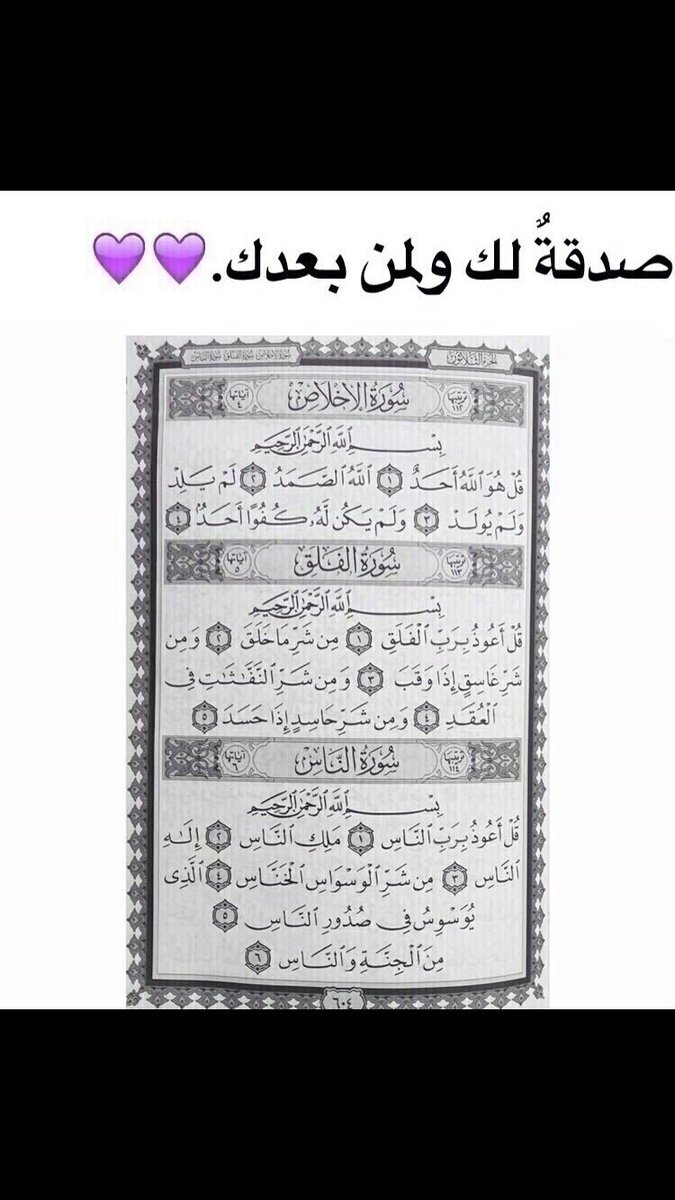 صدقةٌ لك ولمن بعدك.💜💜
الجزء الثلاثون سورة الإخلاص سورة الفلق سورة الناس
ترتيبها ١١٢ سُورَةُ الإِخْلَاصِ آياتها ٤
بِسْمِ ٱللَّهِ ٱلرَّحْمَٰنِ ٱلرَّحِيمِ
قُلْ هُوَ ٱللَّهُ أَحَدٌ ١ ٱللَّهُ ٱلصَّمَدُ ٢ لَمْ يَلِدْ
وَلَمْ يُولَدْ ٣ وَلَمْ يَكُن لَّهُۥ كُفُوًا أَحَدٌۢ ٤
ترتيبها ١١٣ سُورَةُ الفَلَقِ آياتها ٥
بِسْمِ ٱللَّهِ ٱلرَّحْمَٰنِ ٱلرَّحِيمِ
قُلْ أَعُوذُ بِرَبِّ ٱلْفَلَقِ ١ مِن شَرِّ مَا خَلَقَ ٢ وَمِن
شَرِّ غَاسِقٍ إِذَا وَقَبَ ٣ وَمِن شَرِّ ٱلنَّفَّٰثَٰتِ فِى
ٱلْعُقَدِ ٤ وَمِن شَرِّ حَاسِدٍ إِذَا حَسَدَ ٥
ترتيبها ١١٤ سُورَةُ النَّاسِ آياتها ٦
بِسْمِ ٱللَّهِ ٱلرَّحْمَٰنِ ٱلرَّحِيمِ
قُلْ أَعُوذُ بِرَبِّ ٱلنَّاسِ ١ مَلِكِ ٱلنَّاسِ ٢ إِلَٰهِ
ٱلنَّاسِ ٣ مِن شَرِّ ٱلْوَسْوَاسِ ٱلْخَنَّاسِ ٤ ٱلَّذِى
يُوَسْوِسُ فِى صُدُورِ ٱلنَّاسِ ٥
مِنَ ٱلْجِنَّةِ وَٱلنَّاسِ ٦
٦٠٤